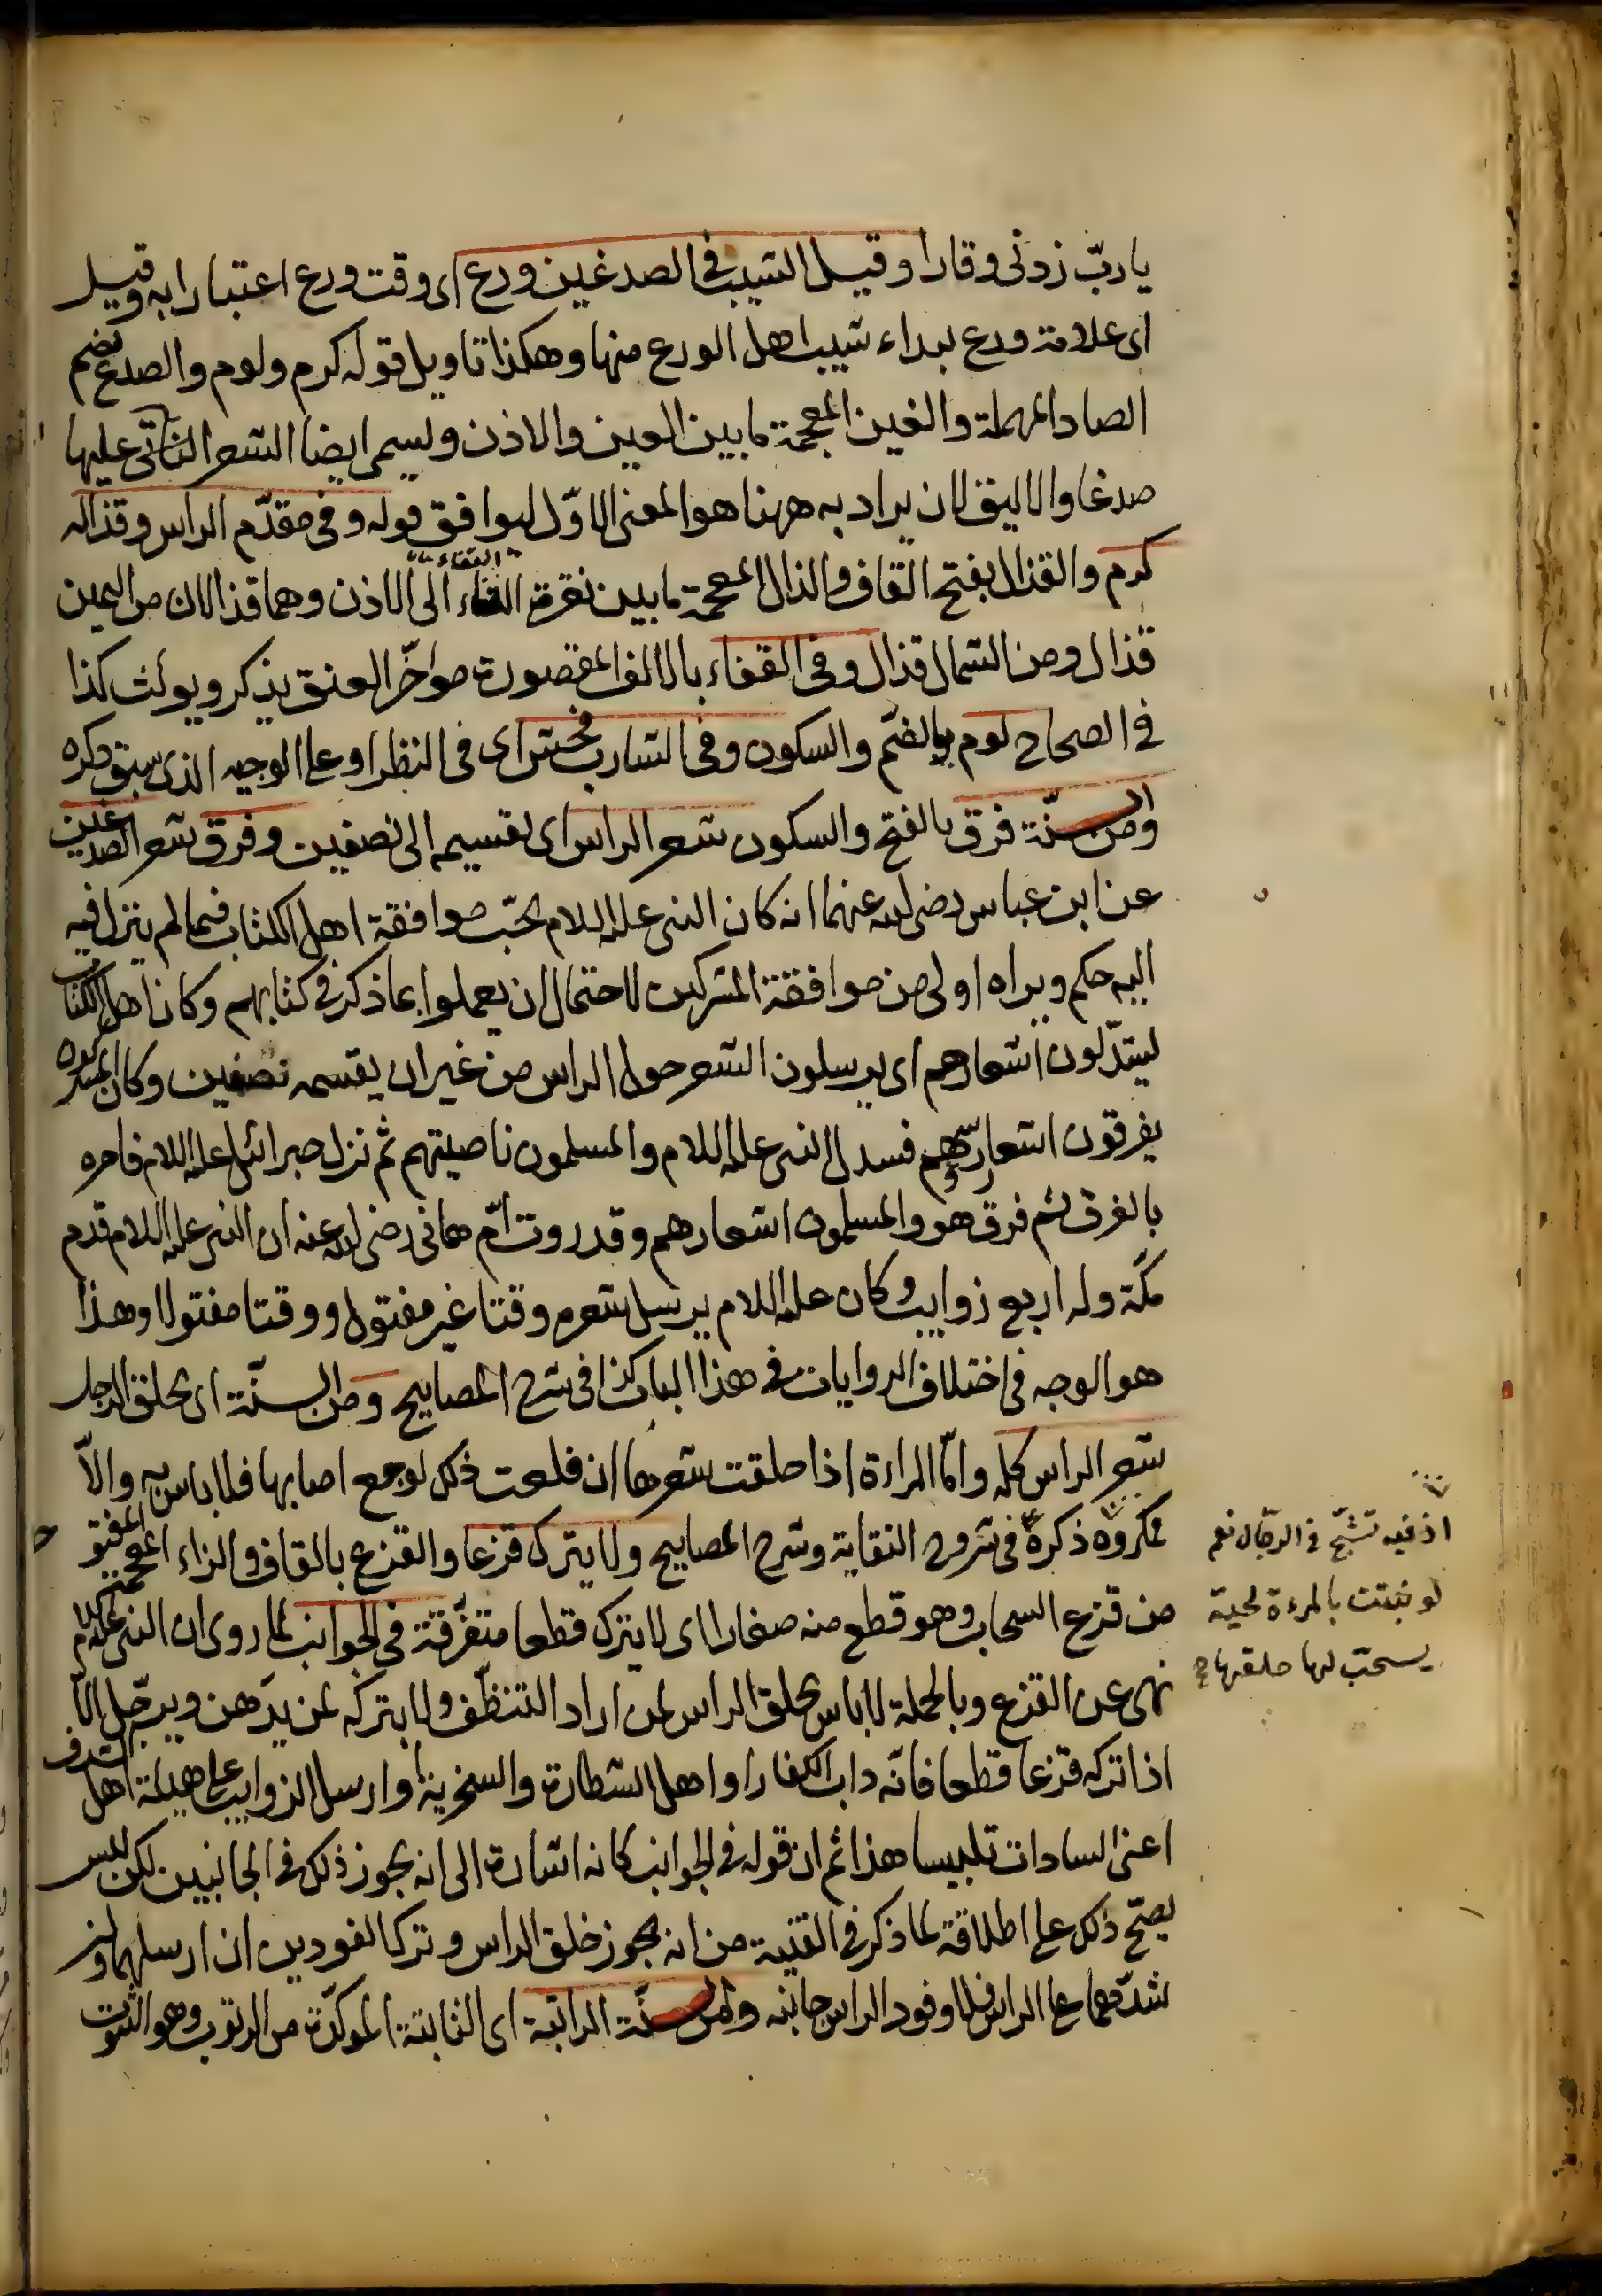 يا ربّ زدنى وقارا وقيل الشيب فى الصدغين ورع اى وقت ورع اعتبارا به وقيل
اى علامة ورع لبداء شيب اهل الورع منها وهكذا تاويل قوله كرم ولوم والصدغ بضم
الصاد المهملة والغين المعجمة ما بين العين والاذن ويسمى ايضا الشعر النابتى عليها
صدغا والاليق لان يراد به ههنا هو المعنى الاوّل ليوافق قوله وفى مقدّم الراس وقذاله
كرم والقذال بفتح القاف والذال المعجمة ما بين نقرة القفاء الى الاذن وهما قذالان من اليمين
قذال ومن الشمال قذال وفى القفاء بالالف المقصورة مواخّر العنق يذكر ويونث كذا
فى الصحاح لوم بالضم والسكون وفى الشارب فحش اى فى النظر او على الوجه الذى سبق ذكره
ومن السنّة فرق بالفتح والسكون شعر الراس اى تقسيمه الى نصفين وفرق شعر الصدغين
عن ابن عباس رضى الله عنهما انه كان النبى عليه السلام يحبّ موافقة اهل الكتاب فيما لم ينزل فيه
اليه حكم ويراه اولى من موافقة المشركين لاحتمال ان يعملوا بما ذكر فى كتابهم وكان اهل الكتاب
ليتدلون اشعارهم اى يرسلون الشعر حول الراس من غير ان يقسمه نصفين وكان المشركون
يفرقون اشعار رؤسهم فسدل النبى عليه السلام والمسلمون ناصيتهم ثم نزل جبرائيل عليه السلام فامره
بالفرق ثم فرق هو والمسلمون اشعارهم وقد روت امّ هانى رضى الله عنه ان النبى عليه السلام قدم
مكّة وله اربع زوايب وكان عليه السلام يرسل شعره وقتا غير مفتول ووقتا مفتولا وهذا
هو الوجه فى اختلاف الروايات فى هذا الباب كذا فى شرح المصابيح ومن السنّة اى يحلق الرجل
شعر الراس كله وامّا المراءة اذا حلقت شعرها ان فلعت ذلك لوجع اصابها فلا باس به والاّ
مكروه ذكره فى شروح النقاية وشرح المصابيح ولا يترك قزعا والقزع بالقاف والزاء المعجمة المفتو
من قزع السحاب وهو قطع منه صغارا اى لا يترك قطعا متفرّقة فى الجوانب لما روى ان النبى عليه السلام
نهى عن القزع وبالجملة لا باس بحلق الراس لمن اراد التنظّف ولا بتركه لمن يدّهن ويرجّل الاّ
اذا تركه قزعا قطعا فانّه داب الكفار او اهل الشطارة والسخرية او ارسل الزوايب على هيئة اهل الشرف
اعنى السادات تلبيسا هذا ثم ان قوله فى الجوانب كانه اشارة الى انه يجوز ذلك فى الجانبين لكن ليس
يصحّ ذلك على اطلاقة لما ذكر فى القنية من انه يجوز خلق الراس وترك الفودين ان ارسلهما ولن
شدّهما على الراس فلا وفود الراس جانبه ومن السنّة الراتبة اى الثابتة الموكدّة من الرتوب وهو الثبوت
اذ فيه تشبّح فى الرجال نعم
لو نبتت بالمرءة لحية
يستحبّ لها حلقها